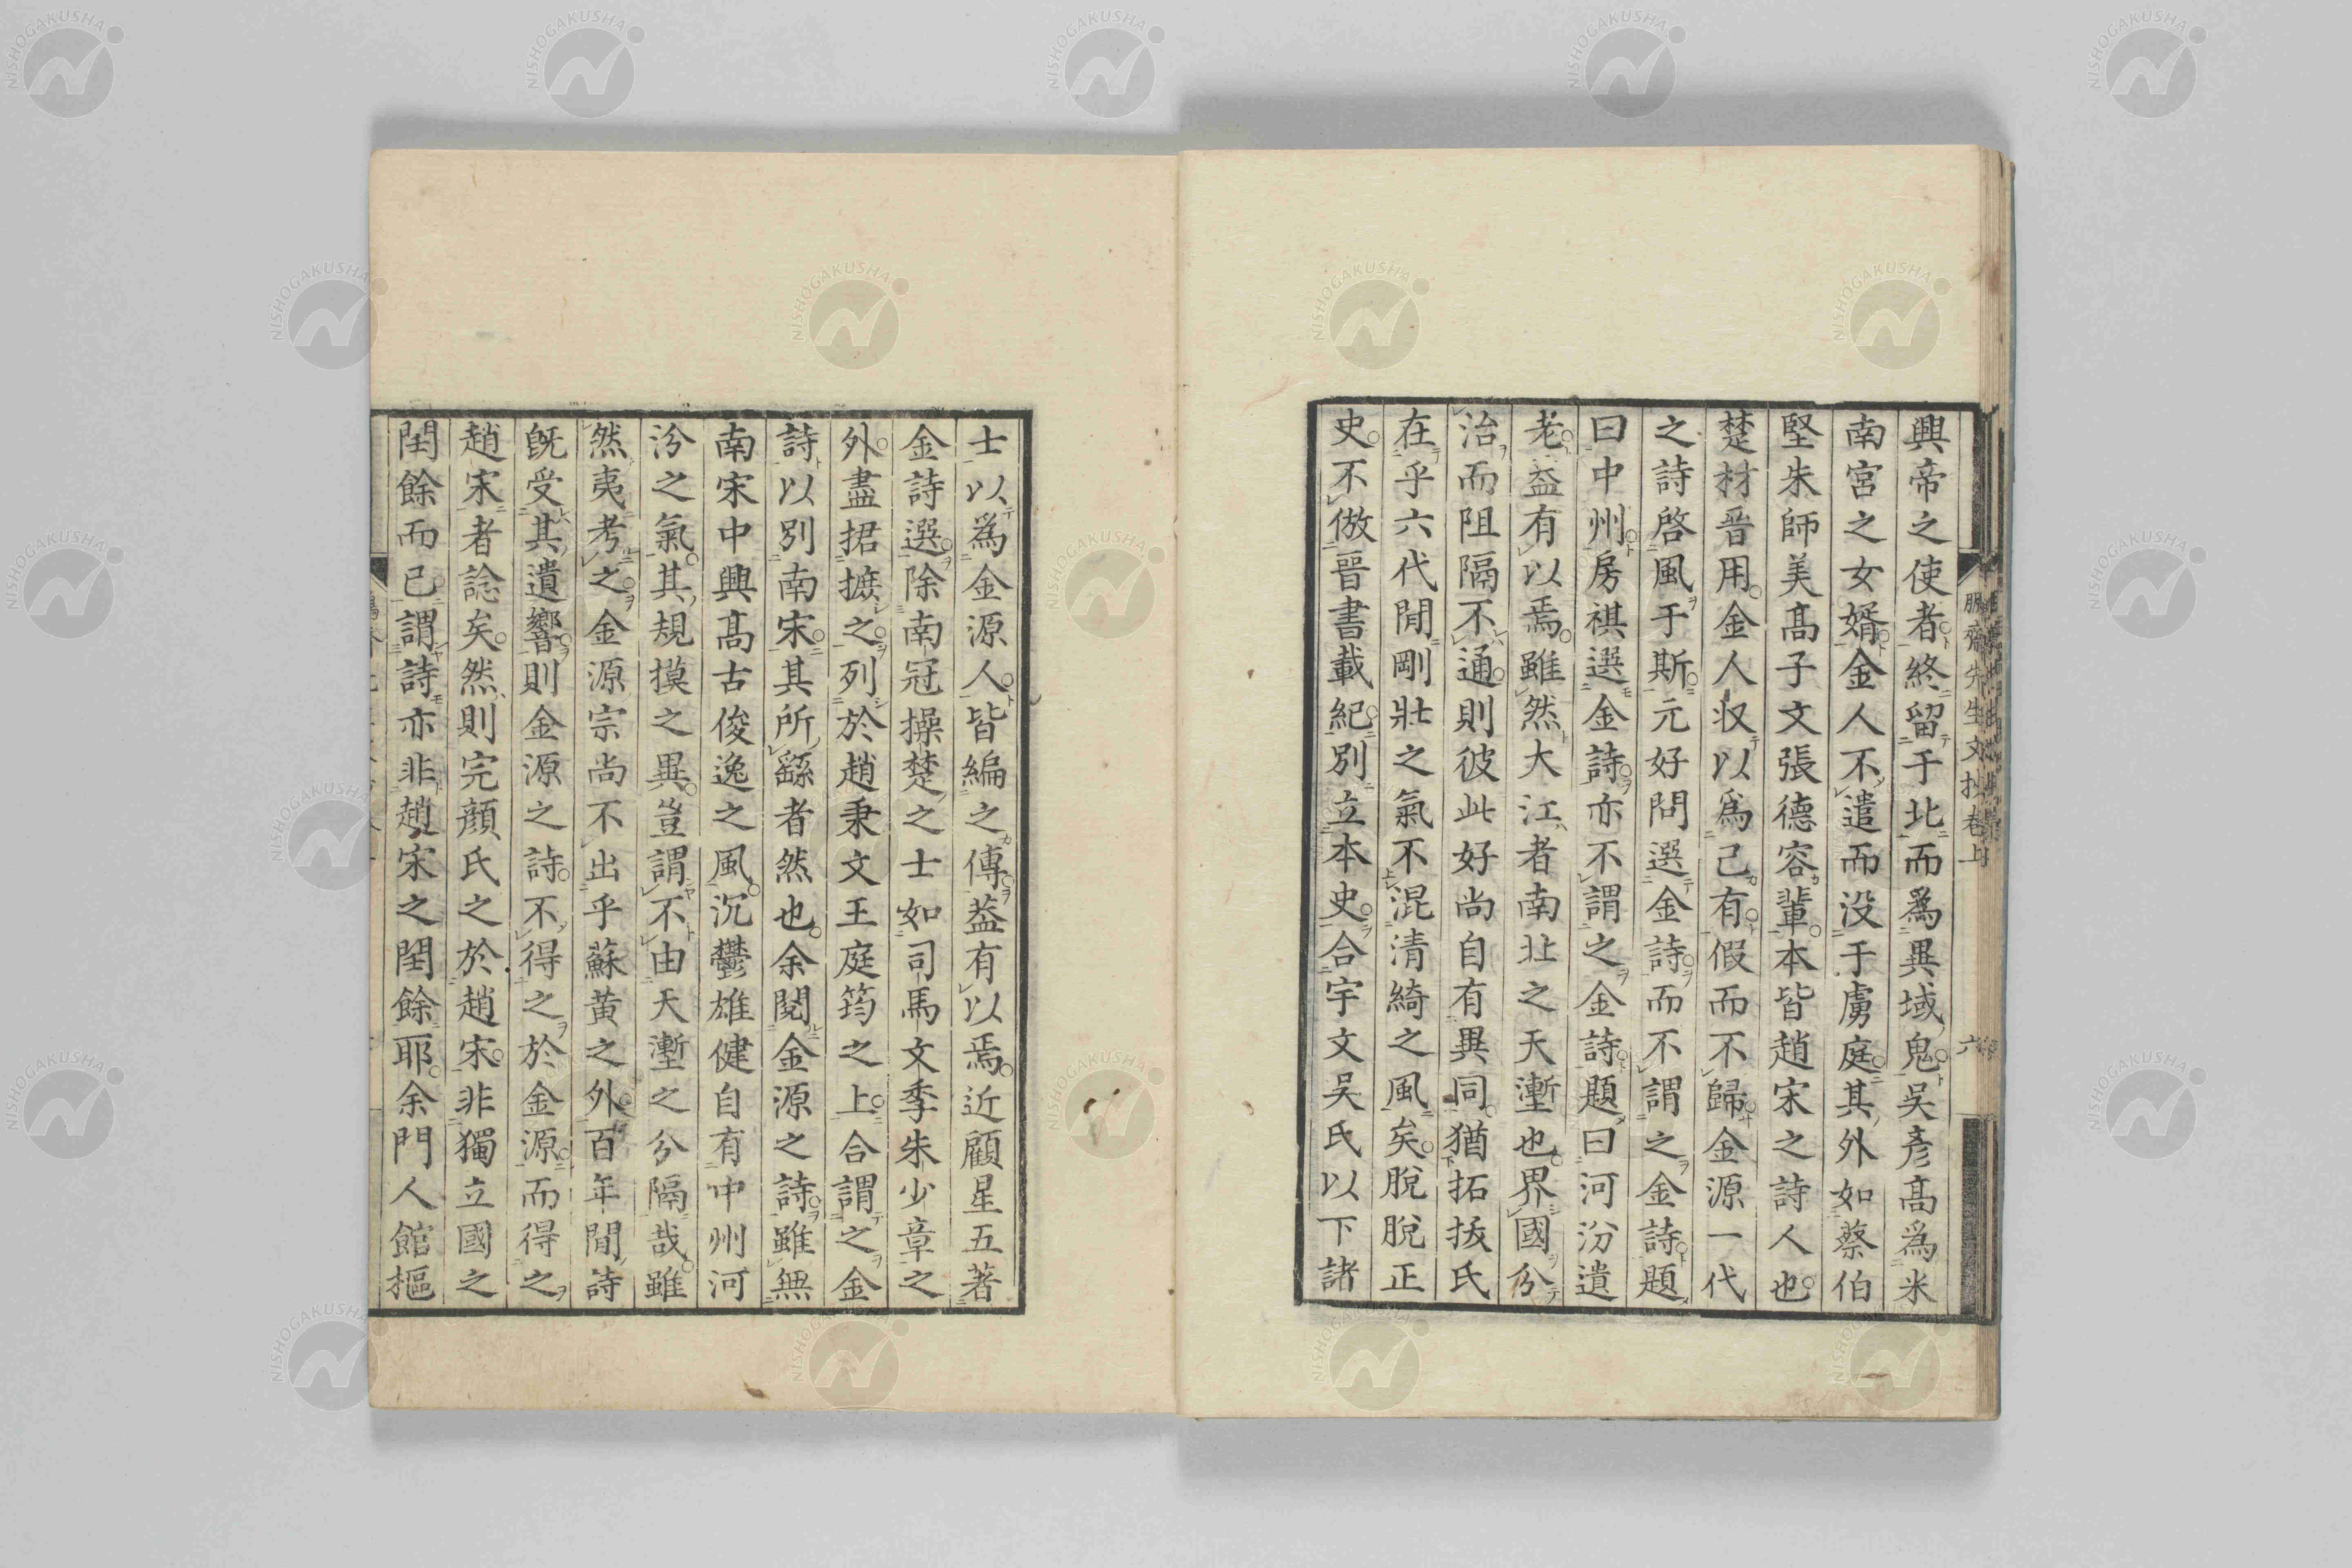 興帝之使者終留于北而爲異域鬼吳彥高爲米
南宮之女婿金人不遣而没于虜庭其外如蔡伯
堅朱師美高子文張德容輩本皆趙宋之詩人也
楚材晋用金人収以爲己有假而不歸金源一代
之詩啓風于斯元好問選金詩而不謂之金詩題
曰中州房祺選金詩亦不謂之金詩題曰河汾遺
老益有以焉雖然大江者南北之天塹也界國分
治而阻隔不通則彼此好尚自有異同猶拓抜氏
在乎六代間剛壯之氣不混清綺之風矣脫脫正
史不倣晋書載紀別立本史合宇文吳氏以下諸
士以爲金源人皆編之傳益有以焉近顧星五著
金詩選除南冠操楚之士如司馬文季朱少章之
外盡捃摭之列於趙秉文王庭筠之上合謂之金
詩以別南宋其所繇者然也余閱金源之詩雖無
南宋中興高古俊逸之風沉鬱雄健自有中州河
汾之氣其規摸之異豈謂不由天塹之分隔哉雖
然夷考之金源宗尚不出乎蘇黄之外百年間詩
既受其遺響則金源之詩不得之於金源而得之
趙宋者諗矣然則完顔氏之於趙宋非獨立國之
閏餘而已謂詩亦非趙宋之閏餘耶余門人館樞
先生文抄卷上
六
NISHOGAKUSHA